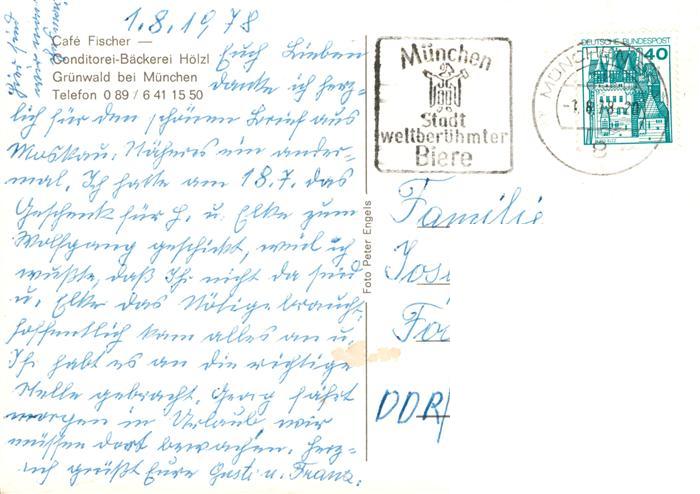 1.8.1978
Café Fischer —
Conditorei-Bäckerei Hölzl
Grünwald bei München
Telefon 0 89 / 6 41 15 50
Euch Lieben
danke ich herz-
lich für den schönen Brief aus
Moskau. Näheres ein ander-
mal. Ich hatte am 18.7. das
Geschenk für H. u. Elke zum
Wolfgang geschickt, weil ich
wußte, daß Ihr nicht da seid
u. Elke das Nötige braucht.
Hoffentlich kam alles an u.
Ihr habt es an die richtige
Stelle gebracht. Georg fährt
morgen in Urlaub, wir
müssen dort bewachen. Herz-
lich grüßt Eure Gusti u. Franz.
Foto Peter Engels
München
Stadt
weltberühmter
Biere
DEUTSCHE BUNDESPOST
40
MÜNCHEN
-1.8.78-20
8
Familie
DDR